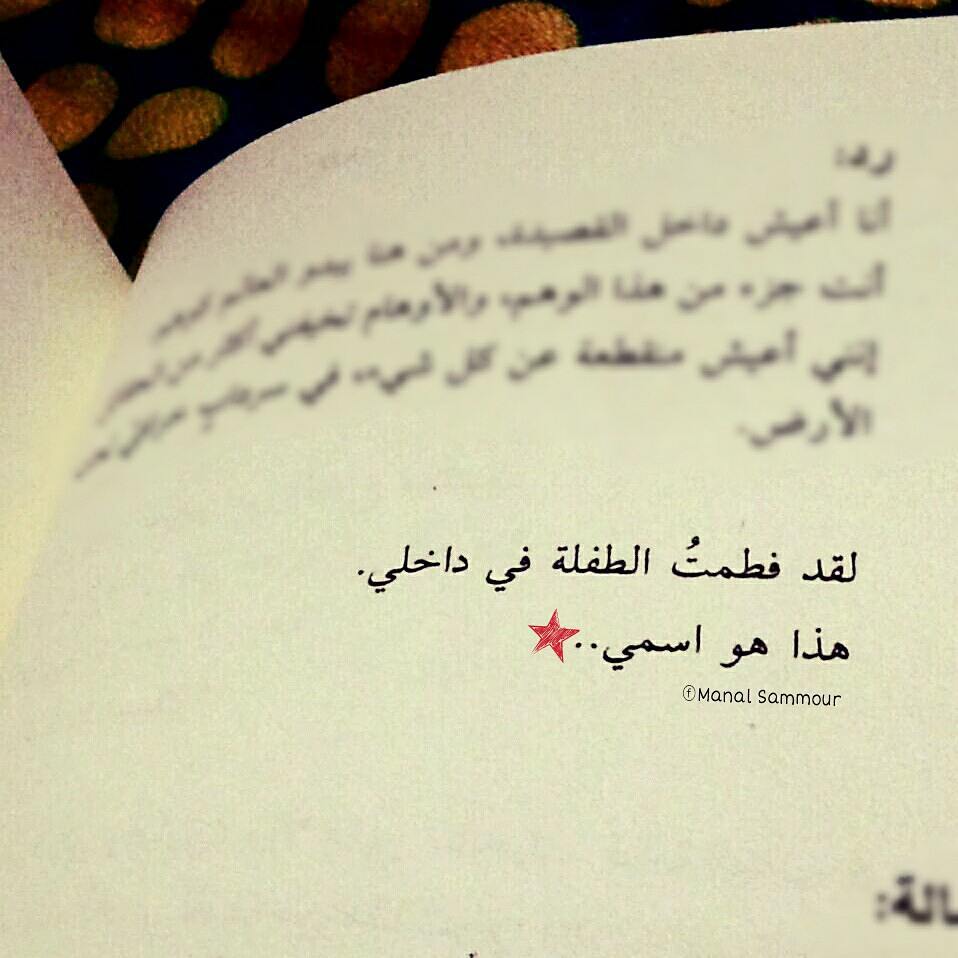 رد:
أنا أعيش داخل القصيدة، ومن هنا يبدو العالم
أنت جزء من هذا الوهم، والأوهام تخيفني أكثر من
إنني أعيش منقطعة عن كل شيء، في سردابٍ
الأرض.
لقد فطمتُ الطفلة في داخلي.
هذا هو اسمي..
ⓕManal Sammour
الة: